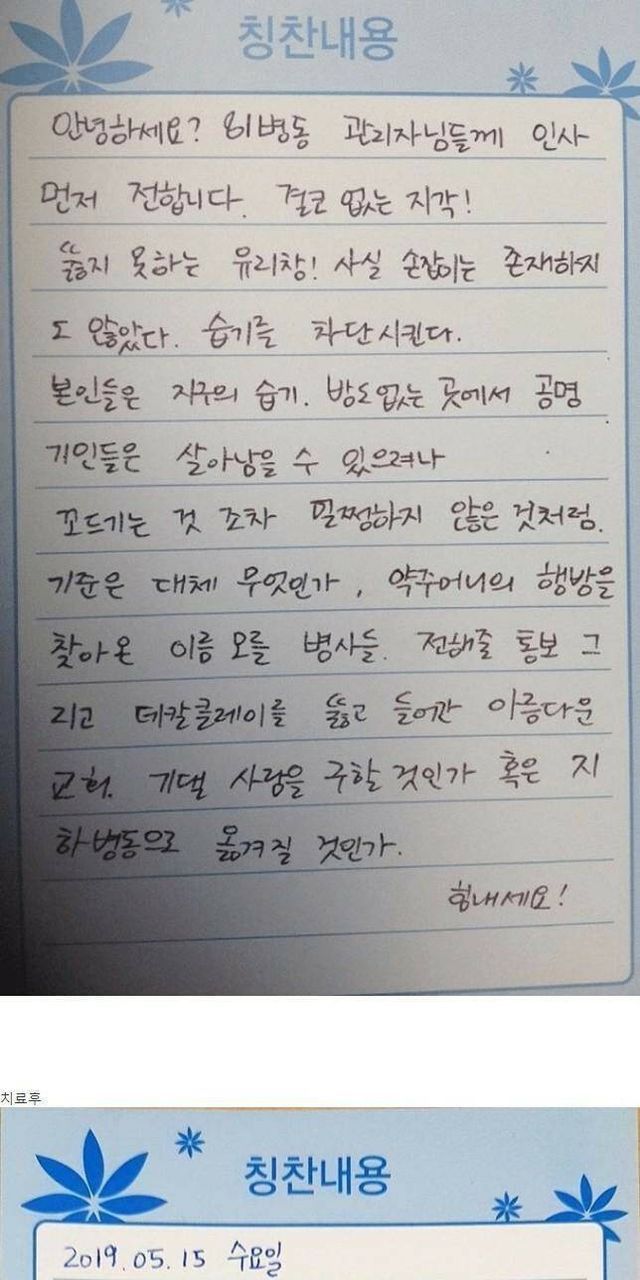 칭찬내용
안녕하세요? 81병동 관리자님들께 인사
먼저 전합니다. 결코 없는 지각!
"뚫지 못하는 유리창! 사실 손잡이는 존재하지
도 않았다. 습기를 차단시킨다.
본인들은 지구의 습기. 방도없는 곳에서 공명
기인들은 살아남을 수 있으려나
꼬드기는 것 조차 멀쩡하지 않은 것처럼.
기준은 대체 무엇인가, 약주머니의 행방을
찾아온 이름 모를 병사들. 전해줄 통보 그
리고 데칼클레이를 뚫고 들어간 아름다운
교회. 기댈 사람을 구할 것인가 혹은 지
하병동으로 옮겨질 것인가.
힘내세요!
치료후
칭찬내용
2019.05.15 수요일